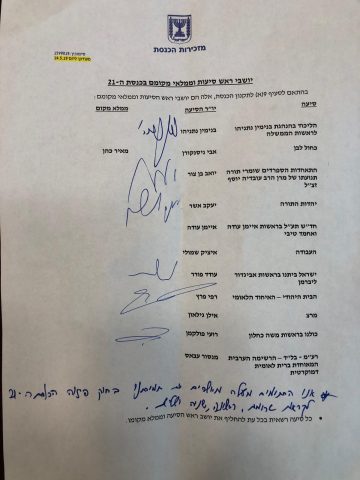 מזכירות הכנסת
יושבי ראש סיעות וממלאי מקומם בכנסת ה-21
בהתאם לסעיף 19(א) לתקנון הכנסת, אלה הם יושבי ראש הסיעות וממלאי מקומם:
סיעה יו"ר הסיעה ממלא מקום
הליכוד בהנהגת בנימין נתניהו בנימין נתניהו
לראשות הממשלה
כחול לבן אבי ניסנקורן מאיר כהן
התאחדות הספרדים שומרי תורה יואב בן צור
תנועתו של מרן הרב עובדיה יוסף
זצ"ל
יהדות התורה יעקב אשר
חד"ש תע"ל בראשות איימן עודה איימן עודה
ואחמד טיבי
העבודה איציק שמולי
ישראל ביתנו בראשות אביגדור עודד פורר
ליברמן
הבית היהודי - האיחוד הלאומי רפי פרץ
מרצ אילן גילאון
כולנו בראשות משה כחלון רועי פולקמן
רע"מ - בל"ד - הרשימה הערבית מנסור עבאס
המאוחדת ברית לאומית
דמוקרטית
אנו החתומים מעלה מאשרים את תמיכתנו בחוק פיזור הכנסת ה-21
לקריאה טרומית, ראשונה, שניה ושלישית.
כל סיעה רשאית בכל עת להחליף את יושב ראש הסיעה וממלא מקומו.